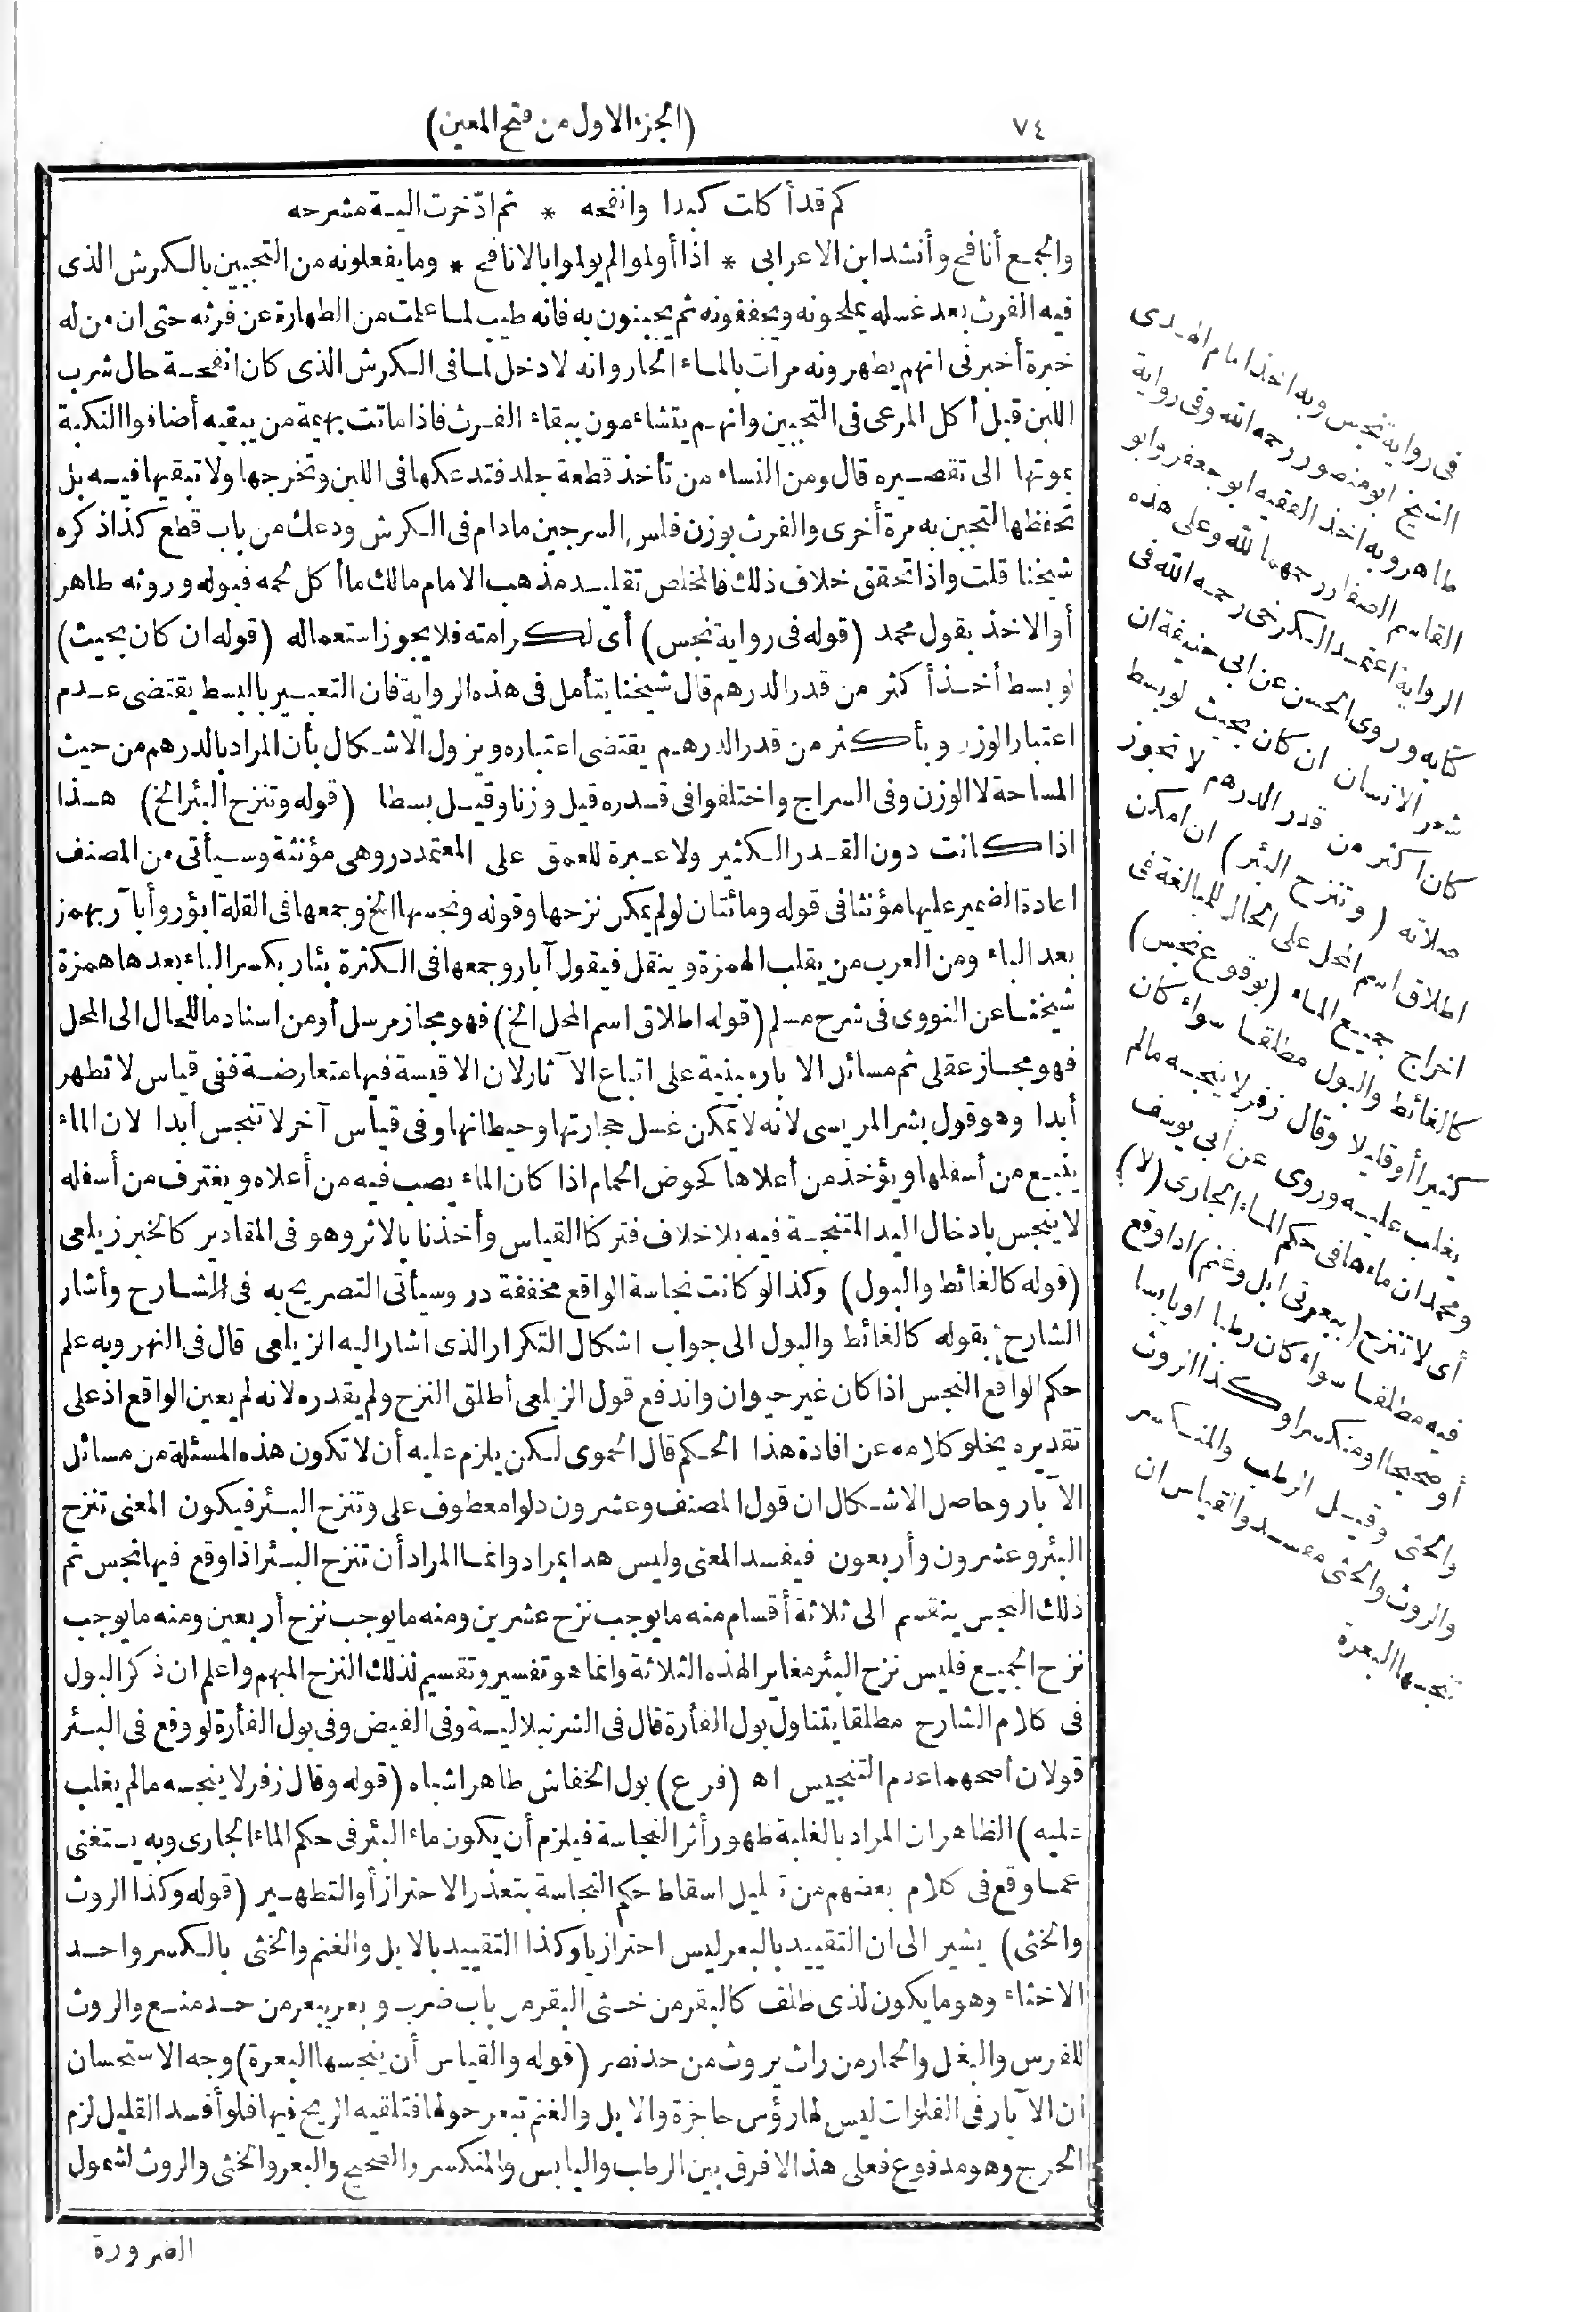 ٧٤
(الجزء الاول من فتح المعين)
كم قد أكلت كبدا وانفحه * ثم ادّخرت الية مشرحه
والجمع أنافح وأنشد ابن الاعرابى * اذا أولموا لم يولموا بالانافح * وما يفعلونه من التجبين بالكرش الذى
فيه الفرث بعد غسله يملحونه ويجففونه ثم يجبنون به فانه طيب لما علمت من الطهارة عن فرثه حتى ان من له
خبرة أخبرنى انهم يطهرونه مرات بالماء الحار وانه لا دخل لما فى الكرش الذى كان انفحة حال شرب
اللبن قبل أكل المرعى فى التجبين وانهم يتشاءمون ببقاء الفرث فاذا ماتت بهيمة من يبقيه أضافوا النكبة
بموتها الى تقصيره قال ومن النساء من تأخذ قطعة جلد فتدعكها فى اللبن وتخرجها ولا تبقيها فيه بل
تحفظها لتجبن به مرة أخرى والفرث بوزن فلس السرجين مادام فى الكرش ودعك من باب قطع كذا ذكره
شيخنا قلت واذا تحقق خلاف ذلك فالمخلص تقليد مذهب الامام مالك ما أكل لحمه فبوله وروثه طاهر
أو الاخذ بقول محمد (قوله فى رواية نجس) أى لكرامته فلا يجوز استعماله (قوله ان كان بحيث)
لو بسط أخذ أكثر من قدر الدرهم قال شيخنا يتأمل فى هذه الرواية فان التعبير بالبسط يقتضى عدم
اعتبار الوزن وبأكثر من قدر الدرهم يقتضى اعتباره ويزول الاشكال بأن المراد بالدرهم من حيث
المساحة لا الوزن وفى السراج واختلفوا فى قدره قيل وزنا وقيل بسطا (قوله وتنزح البئر الخ) هذا
اذا كانت دون القدر الكثير ولا عبرة للعمق على المعتمد در وهى مؤنثة وسيأتى من المصنف
اعادة الضمير عليها مؤنثا فى قوله ومائتان لو لم يمكن نزحها وقوله ونجسها الخ وجمعها فى القلة ابؤر وأبآر بهمز
بعد الباء ومن العرب من يقلب الهمزة وينقل فيقول آبار وجمعها فى الكثرة بئار بكسر الباء بعدها همزة
شيخنا عن النووى فى شرح مسلم (قوله اطلاق اسم المحل الخ) فهو مجاز مرسل أو من اسناد ما للحال الى المحل
فهو مجاز عقلى ثم مسائل الابار مبنية على اتباع الآثار لان الاقيسة فيها متعارضة ففى قياس لا تطهر
أبدا وهو قول بشر المريسى لانه لا يمكن غسل حجارتها وحيطانها وفى قياس آخر لا تنجس أبدا لان الماء
ينبع من أسفلها ويؤخذ من أعلاها كحوض الحمام اذا كان الماء يصب فيه من أعلاه ويغترف من أسفله
لا ينجس بادخال اليد المتنجسة فيه بلا خلاف فتركنا القياس وأخذنا بالاثر وهو فى المقادير كالخبر زيلعى
(قوله كالغائط والبول) وكذا لو كانت نجاسة الواقع مخففة در وسيأتى التصريح به فى الشارح وأشار
الشارح بقوله كالغائط والبول الى جواب اشكال التكرار الذى اشار اليه الزيلعى قال فى النهر وبه علم
حكم الواقع النجس اذا كان غير حيوان واندفع قول الزيلعى أطلق النزح ولم يقدره لانه لم يعين الواقع اذ على
تقديره يخلو كلامه عن افادة هذا الحكم قال الحموى لكن يلزم عليه أن لا تكون هذه المسئلة من مسائل
الآبار وحاصل الاشكال ان قول المصنف وعشرون دلوا معطوف على وتنزح البئر فيكون المعنى تنزح
البئر وعشرون وأربعون فيفسد المعنى وليس هذا بمراد وانما المراد أن تنزح البئر اذا وقع فيها نجس ثم
ذلك النجس ينقسم الى ثلاثة أقسام منه ما يوجب نزح عشرين ومنه ما يوجب نزح أربعين ومنه ما يوجب
نزح الجميع فليس نزح البئر مغايرا لهذه الثلاثة وانما هو تفسير وتقسيم لذلك النزح المبهم واعلم ان ذكر البول
فى كلام الشارح مطلقا يتناول بول الفأرة قال فى الشرنبلالية وفى الفيض وفى بول الفأرة لو وقع فى البئر
قولان اصحهما عدم التنجيس اه (فرع) بول الخفاش طاهر اشباه (قوله وقال زفر لا ينجسه ما لم يغلب
عليه) الظاهر ان المراد بالغلبة ظهور أثر النجاسة فيلزم أن يكون ماء البئر فى حكم الماء الجارى وبه يستغنى
عما وقع فى كلام بعضهم من تعليل اسقاط حكم النجاسة بتعذر الاحتراز أو التطهير (قوله وكذا الروث
والخثى) يشير الى ان التقييد بالبعر ليس احترازيا وكذا التقييد بالابل والغنم والخثى بالكسر واحد
الاخثاء وهو ما يكون لذى ظلف كالبقر من خثى البقر من باب ضرب وبعر يبعر من حد منع والروث
للفرس والبغل والحمار من راث يروث من حد نصر (قوله والقياس أن ينجسها البعرة) وجه الاستحسان
ان الآبار فى الفلوات ليس لها رؤس حاجزة والابل والغنم تبعر حولها فتلقيه الريح فيها فلو أفسد القليل لزم
الحرج وهو مدفوع فعلى هذا لا فرق بين الرطب واليابس والمنكسر والصحيح والبعر والخثى والروث لشمول
الضرورة
فى رواية نجس وبه اخذ امام الهدى
الشيخ ابو منصور رحمه الله وفى رواية
طاهر وبه اخذ الفقيه ابو جعفر وابو
القاسم الصفار رحمهما الله وعلى هذه
الرواية اعتمد الكرخى رحمه الله فى
كتابه وروى الحسن عن ابى حنيفة ان
شعر الانسان ان كان بحيث لو بسط
كان اكثر من قدر الدرهم لا تجوز
صلاته (وتنزح البئر) ان امكن
اطلاق اسم المحل على الحال للمبالغة فى
اخراج جميع الماء (بوقوع نجس)
كالغائط والبول مطلقا سواء كان
كثيرا أو قليلا وقال زفر لا ينجسه ما لم
يغلب عليه وروى عن أبى يوسف
ومحمد ان ماءها فى حكم الماء الجارى (لا)
أى لا تنزح (ببعرتى ابل وغنم) اذا وقع
فيه مطلقا سواء كان رطبا او يابسا
أو صحيحا او منكسرا وكذا الروث
والخثى وقيل الرطب والمنكسر
والروث والخثى مفسد والقياس ان
تنجسها البعرة